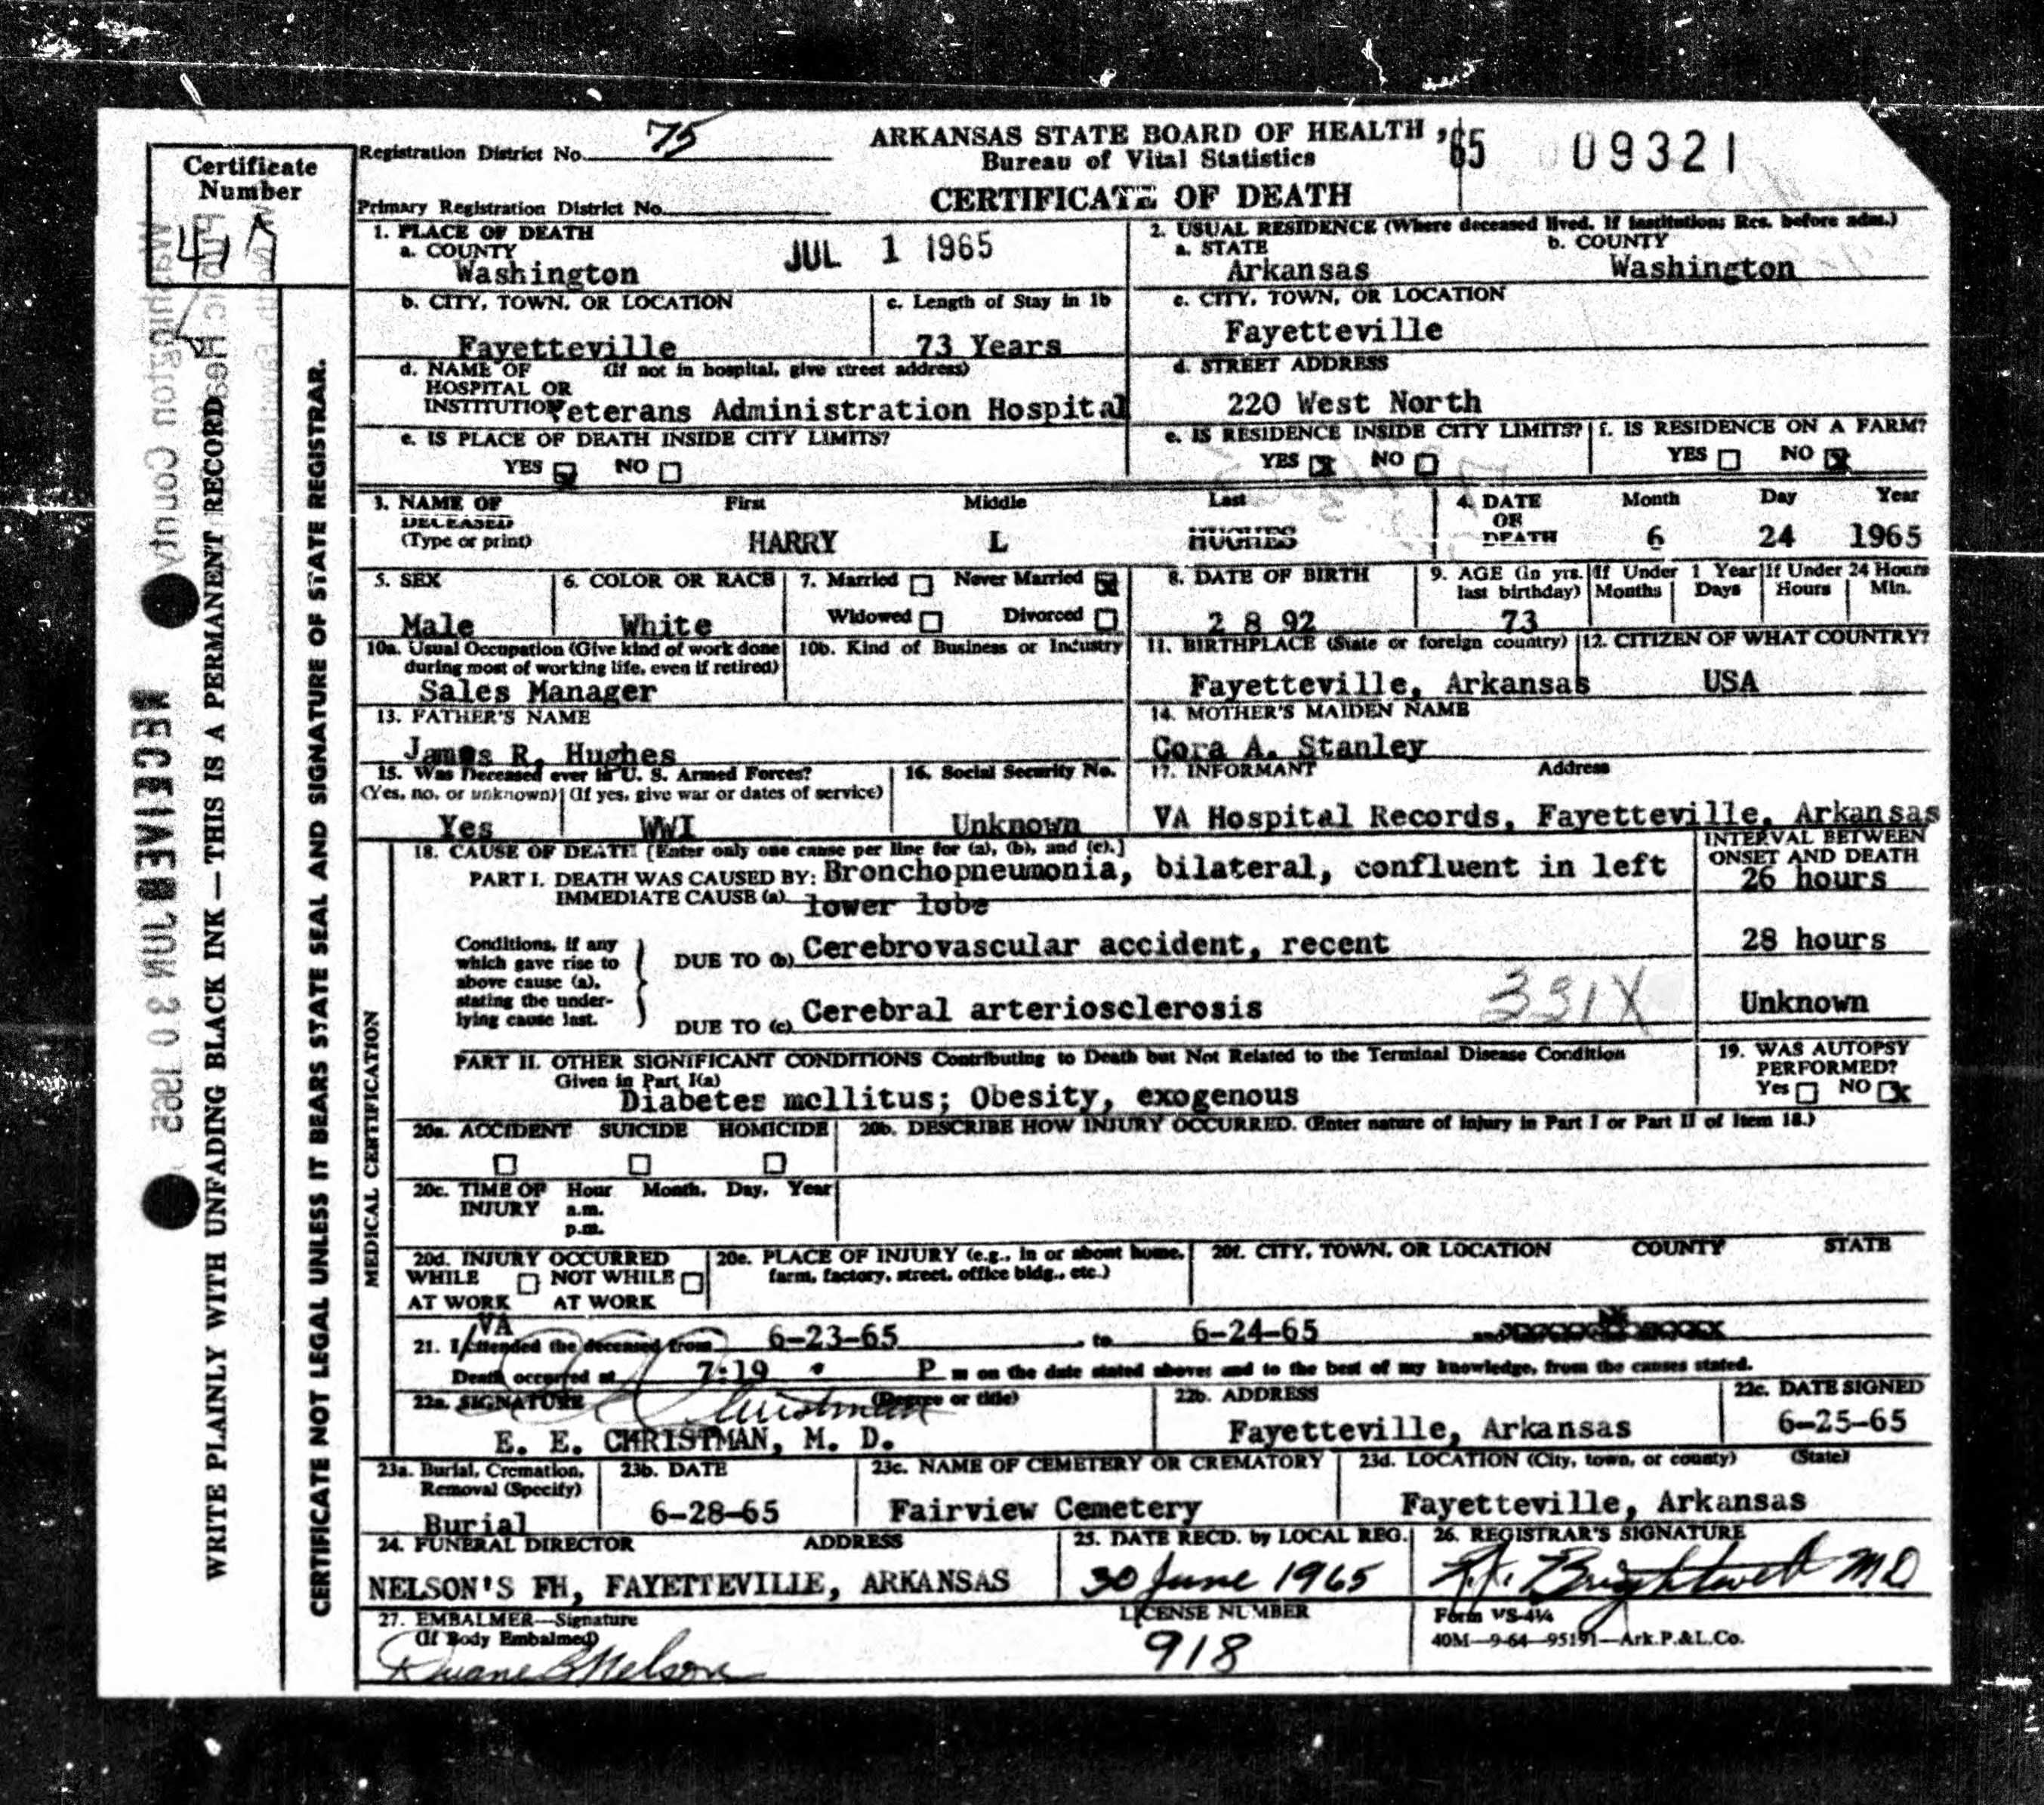 Certificate Number
Registration District No. 75
Primary Registration District No.
ARKANSAS STATE BOARD OF HEALTH
Bureau of Vital Statistics
CERTIFICATE OF DEATH
65 09321
JUL 1 1965
1. PLACE OF DEATH
a. COUNTY
Washington
2. USUAL RESIDENCE (Where deceased lived. If institution: Res. before adm.)
a. STATE b. COUNTY
Arkansas Washington
b. CITY, TOWN, OR LOCATION c. Length of Stay in 1b
Fayetteville 73 Years
c. CITY, TOWN, OR LOCATION
Fayetteville
d. NAME OF (If not in hospital, give street address)
HOSPITAL OR
INSTITUTION Veterans Administration Hospital
d. STREET ADDRESS
220 West North
e. IS PLACE OF DEATH INSIDE CITY LIMITS?
YES NO
e. IS RESIDENCE INSIDE CITY LIMITS? f. IS RESIDENCE ON A FARM?
YES X NO YES NO X
3. NAME OF First Middle Last
DECEASED
(Type or print) HARRY L HUGHES
4. DATE Month Day Year
OF
DEATH 6 24 1965
5. SEX 6. COLOR OR RACE 7. Married Never Married X
Widowed Divorced
Male White
8. DATE OF BIRTH
2 8 92
9. AGE (in yrs. last birthday) If Under 1 Year If Under 24 Hours
Months Days Hours Min.
73
10a. Usual Occupation (Give kind of work done
during most of working life, even if retired)
Sales Manager
10b. Kind of Business or Industry
11. BIRTHPLACE (State or foreign country) 12. CITIZEN OF WHAT COUNTRY?
Fayetteville, Arkansas USA
13. FATHER'S NAME
James R. Hughes
14. MOTHER'S MAIDEN NAME
Cora A. Stanley
15. Was Deceased ever in U. S. Armed Forces? 16. Social Security No.
(Yes, no, or unknown) (If yes, give war or dates of service)
Yes WWI Unknown
17. INFORMANT Address
VA Hospital Records, Fayetteville, Arkansas
MEDICAL CERTIFICATION
18. CAUSE OF DEATH [Enter only one cause per line for (a), (b), and (c).]
PART I. DEATH WAS CAUSED BY: Bronchopneumonia, bilateral, confluent in left
IMMEDIATE CAUSE (a) lower lobe
INTERVAL BETWEEN
ONSET AND DEATH
26 hours
Conditions, if any
which gave rise to
above cause (a),
stating the under-
lying cause last.
DUE TO (b) Cerebrovascular accident, recent 28 hours
DUE TO (c) Cerebral arteriosclerosis 331X Unknown
PART II. OTHER SIGNIFICANT CONDITIONS Contributing to Death but Not Related to the Terminal Disease Condition
Given in Part I(a)
Diabetes mellitus; Obesity, exogenous
19. WAS AUTOPSY
PERFORMED?
Yes NO X
20a. ACCIDENT SUICIDE HOMICIDE 20b. DESCRIBE HOW INJURY OCCURRED. (Enter nature of injury in Part I or Part II of Item 18.)
20c. TIME OF Hour Month, Day, Year
INJURY a.m.
p.m.
20d. INJURY OCCURRED 20e. PLACE OF INJURY (e.g., in or about home, 20f. CITY, TOWN, OR LOCATION COUNTY STATE
WHILE NOT WHILE farm, factory, street, office bldg., etc.)
AT WORK AT WORK
VA
21. I attended the deceased from 6-23-65 to 6-24-65
Death occurred at 7:19 P m on the date stated above; and to the best of my knowledge, from the causes stated.
22a. SIGNATURE (Degree or title) 22b. ADDRESS 22c. DATE SIGNED
E. E. CHRISTMAN, M. D. Fayetteville, Arkansas 6-25-65
23a. Burial, Cremation, 23b. DATE 23c. NAME OF CEMETERY OR CREMATORY 23d. LOCATION (City, town, or county) (State)
Removal (Specify)
Burial 6-28-65 Fairview Cemetery Fayetteville, Arkansas
24. FUNERAL DIRECTOR ADDRESS 25. DATE RECD. by LOCAL REG. 26. REGISTRAR'S SIGNATURE
NELSON'S FH, FAYETTEVILLE, ARKANSAS 30 June 1965 Brightwell MD
27. EMBALMER—Signature LICENSE NUMBER Form VS-4¼
(If Body Embalmed) 40M—9-64—95191—Ark.P.&L.Co.
Duane B Nelson 918
WRITE PLAINLY WITH UNFADING BLACK INK — THIS IS A PERMANENT RECORD
CERTIFICATE NOT LEGAL UNLESS IT BEARS STATE SEAL AND SIGNATURE OF STATE REGISTRAR.
RECEIVED JUN 30 1965
Washington County